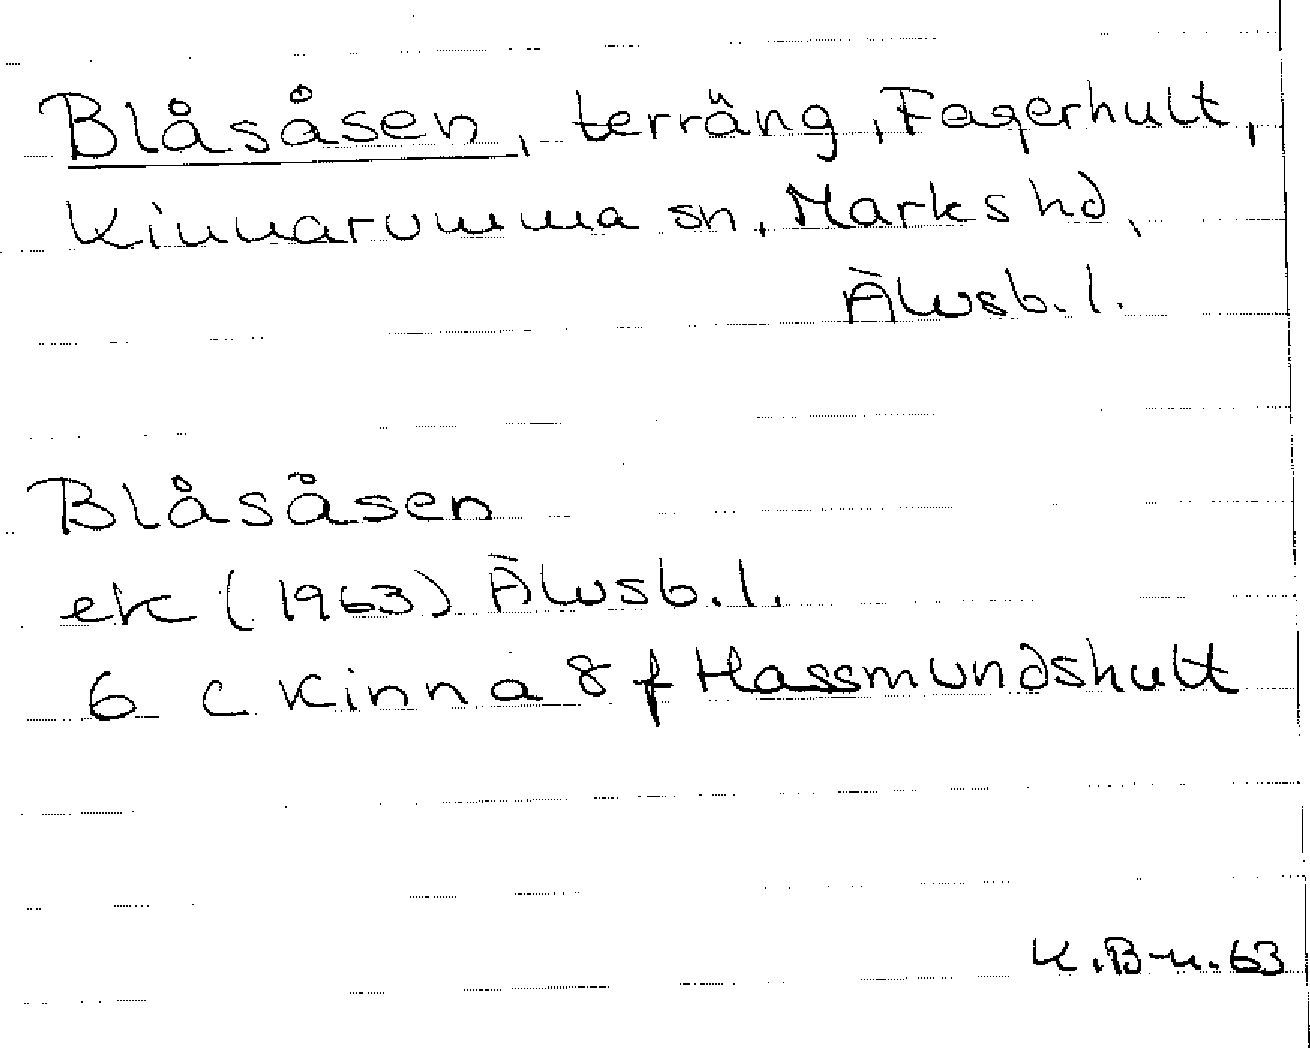 Blåsåsen, terräng, Fagerhult,
Kinnarumma sn, Marks hd,
Älvsb. l.
Blåsåsen
ek (1963) Älvsb. l.
6 C Kinna 8 f Hassmundshult
K.B-n. 63